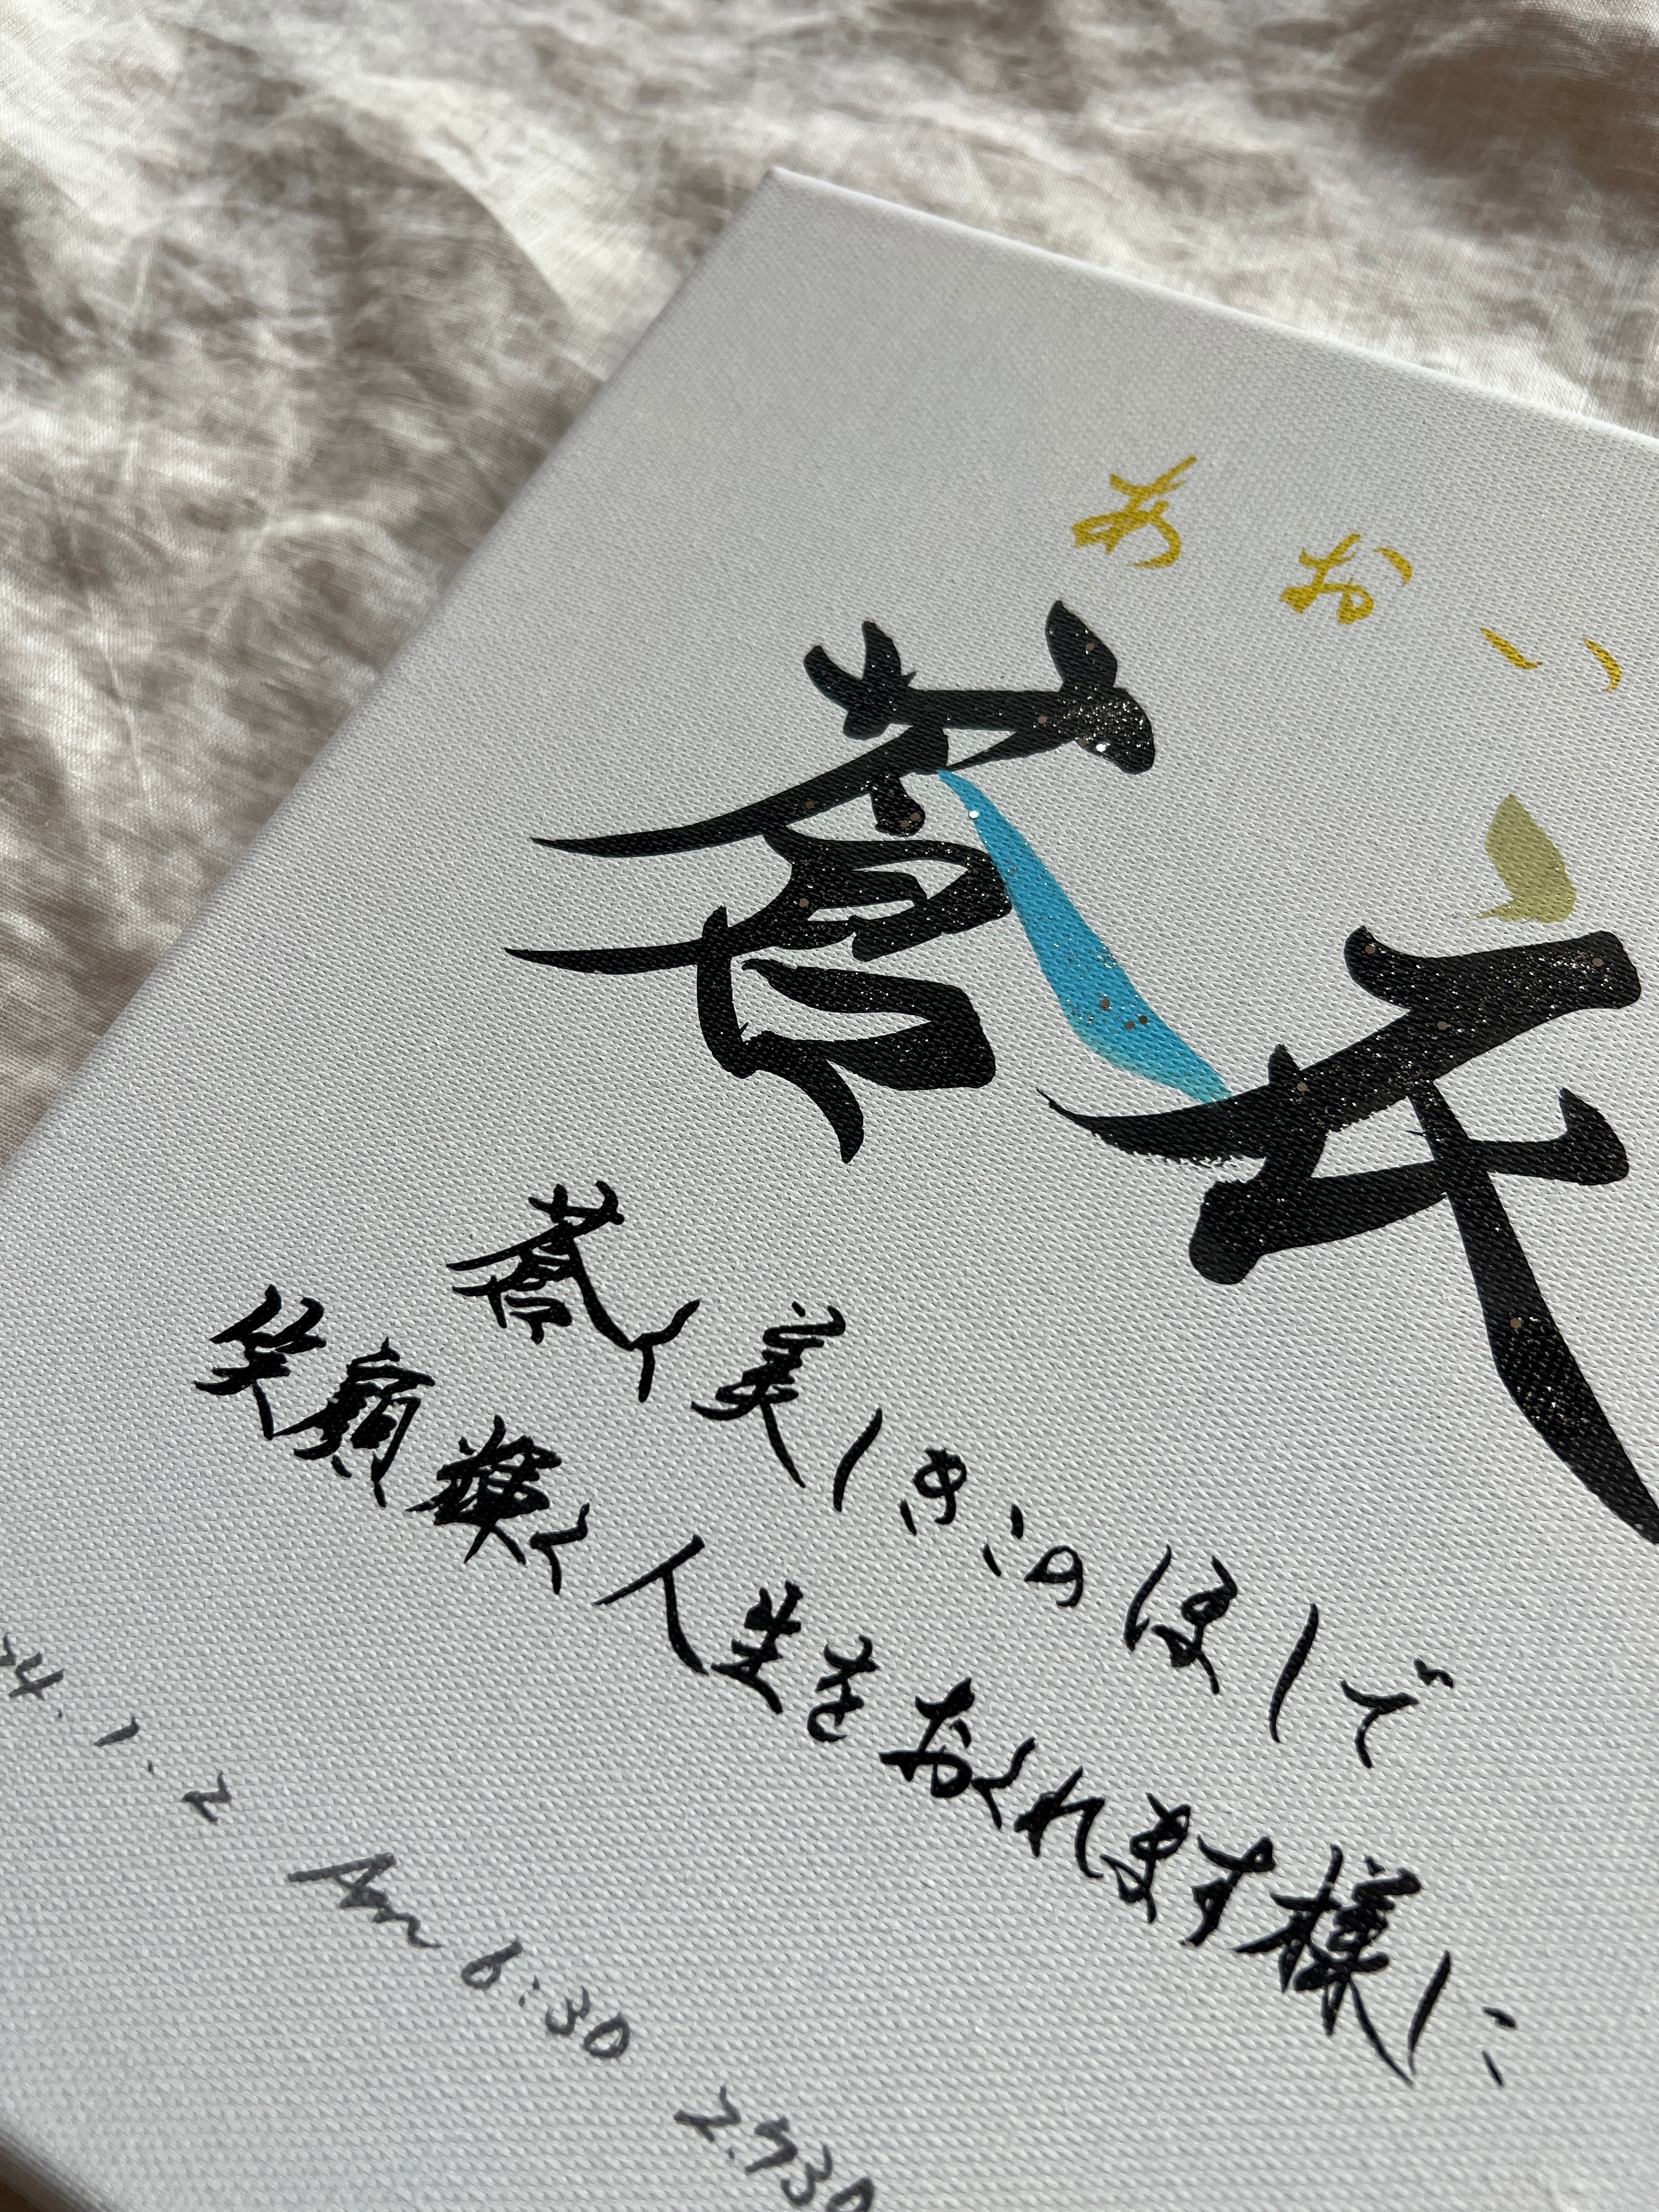 あおい
蒼衣
蒼く美しきこのほしで
笑顔輝く人生をおくれます様に
4.1.2 Am 6:30